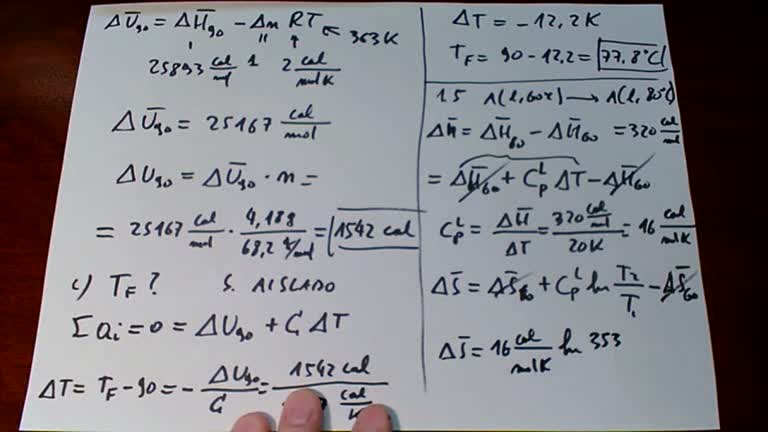 ΔU̅₉₀ = ΔH̅₉₀ − Δn RT ← 363K
25893 cal/ml 1 2 cal/molK
ΔU̅₉₀ = 25167 cal/mol
ΔU₉₀ = ΔU̅₉₀ · n =
= 25167 cal/mol · 4,18g / 68,2 g/mol = 1542 cal
c) T_F ? S. AISLADO
Σ Qi = 0 = ΔU₉₀ + C ΔT
ΔT = T_F − 90 = − ΔU₉₀ / C = 1542 cal / cal/K
ΔT = −12,2K
T_F = 90 − 12,2 = 77,8°C
15 A(l, 60°C) → A(l, 80°C)
ΔH̅ = ΔH̅₈₀ − ΔH̅₆₀ = 320 cal/ml
= ΔH̅₆₀ + Cp^L ΔT − ΔH̅₆₀
Cp^L = ΔH̅ / ΔT = 320 cal/ml / 20K = 16 cal/molK
ΔS̅ = ΔS̅₆₀ + Cp^L ln T₂/T₁ − ΔS̅₆₀
ΔS̅ = 16 cal/molK ln 353